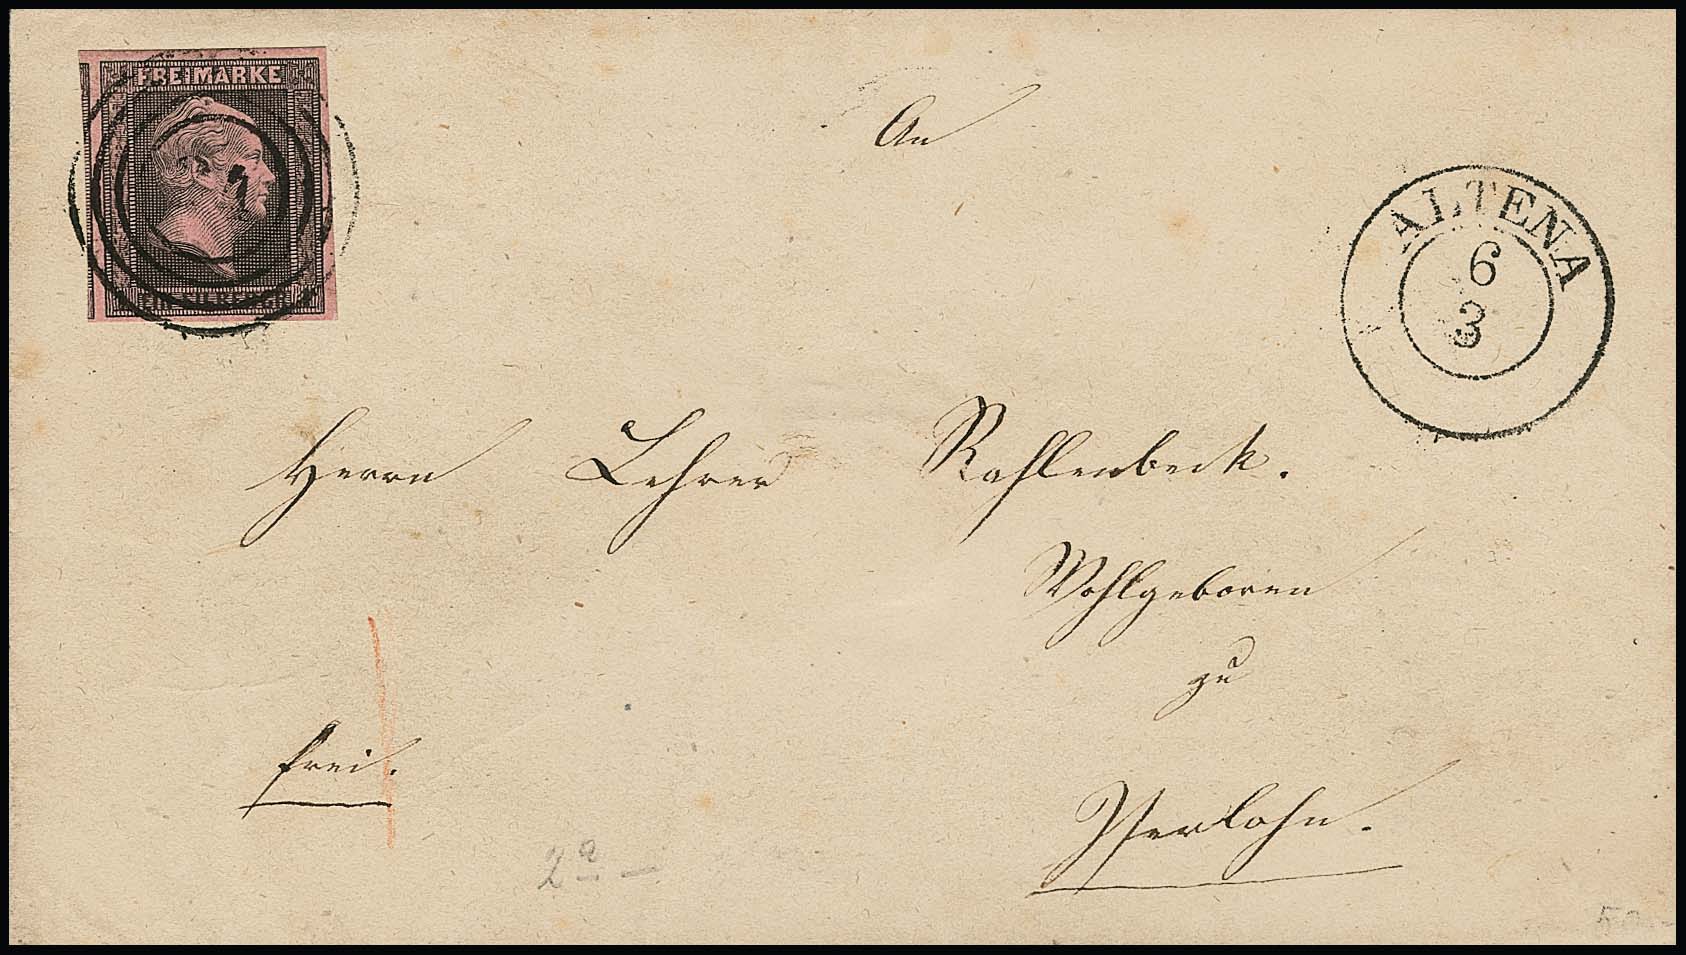 FREIMARKE
7
EIN SILBERGR.
An
ALTENA
6
3
Herrn Lehrer Rahlenbeck.
Wohlgeboren
zu
frei.
Iserlohn.
2a —
50 —